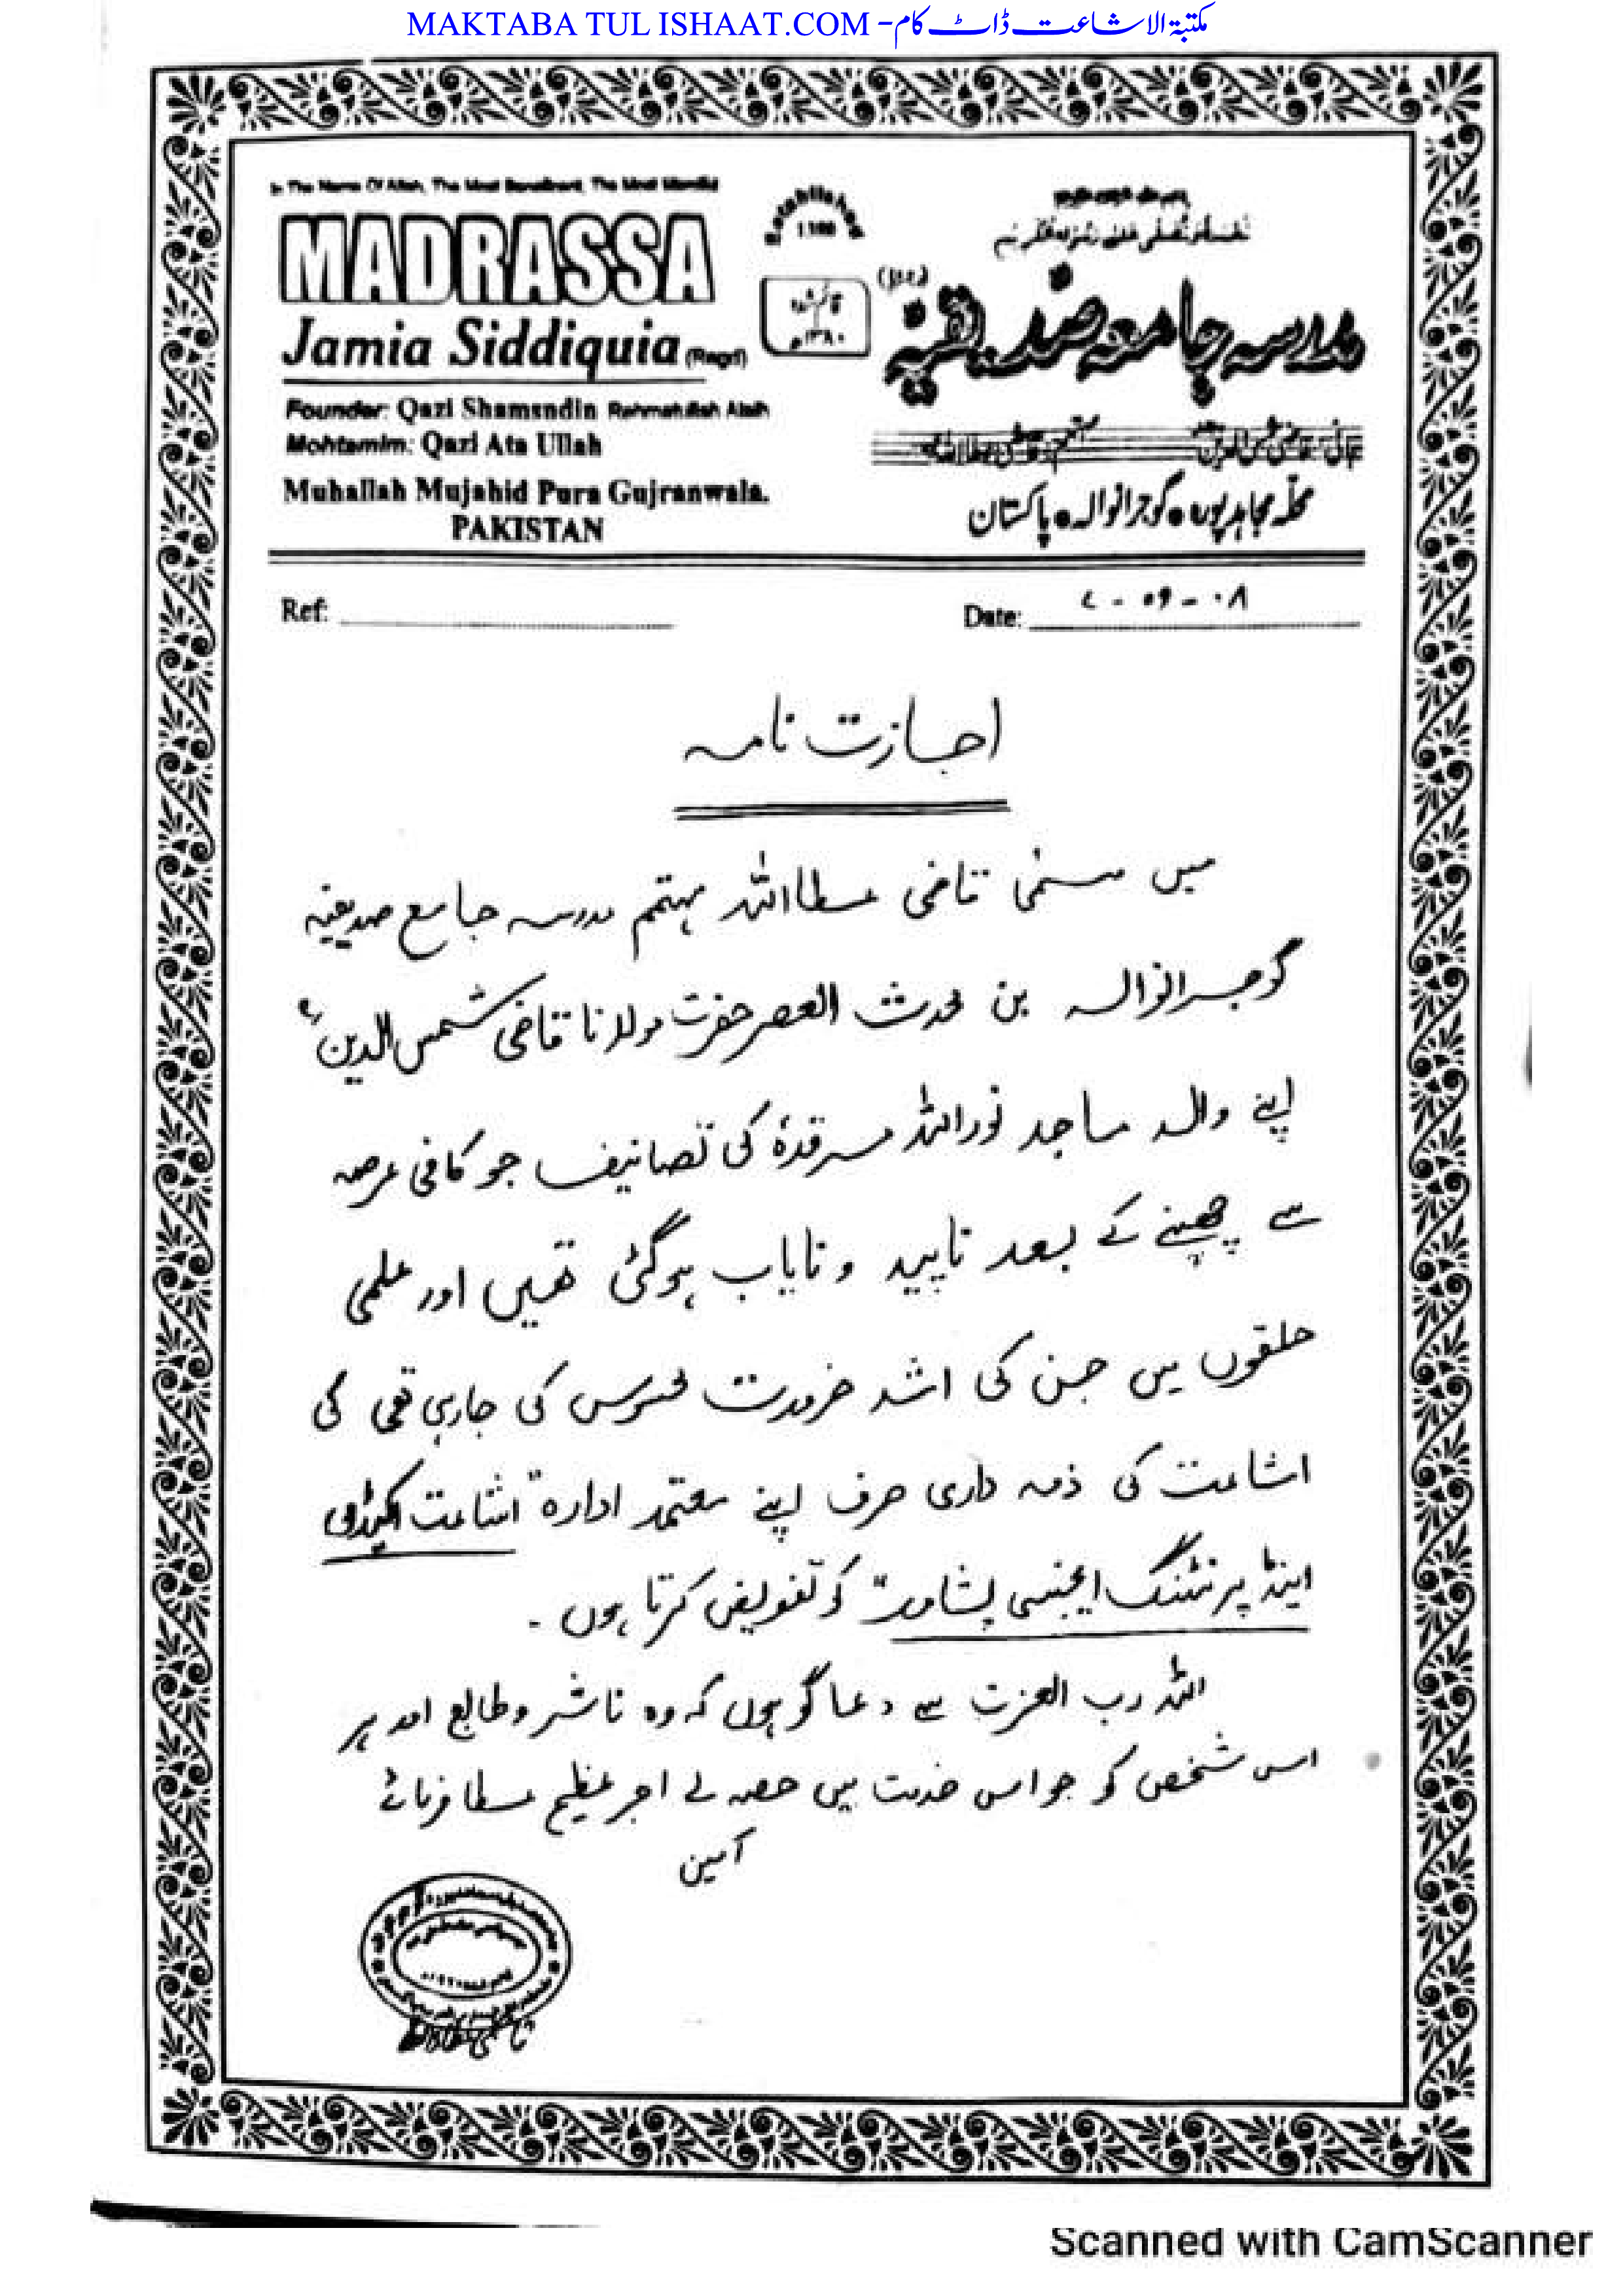 MAKTABA TUL ISHAAT.COM - مکتبۃ الاشاعت ڈاٹ کام
In The Name Of Allah, The Most Beneficent, The Most Merciful
MADRASSA
Jamia Siddiquia (Regd)
Founder: Qazi Shamsudin Rahmatullah Alaih
Mohtamim: Qazi Ata Ullah
Muhallah Mujahid Pura Gujranwala.
PAKISTAN
Established
مدرسہ جامعہ صدیقیہ
محلّہ مجاہد پورہ • گوجرانوالہ • پاکستان
Ref:
Date:
اجازت نامہ
میں مسمّٰی قاضی عطااللہ مہتمم مدرسہ جامع صدیقیہ
گوجرانوالہ بن محدث العصر حضرت مولانا قاضی شمس الدینؒ
اپنے والد ماجد نوراللہ مرقدہٗ کی تصانیف جو کافی عرصہ
سے چھپنے کے بعد ناپید و نایاب ہوگئی تھیں اور علمی
حلقوں میں جن کی اشد ضرورت محسوس کی جارہی تھی کی
اشاعت کی ذمہ داری صرف اپنے معتمد ادارہ "اشاعت اکیڈمی
اینڈ پرنٹنگ ایجنسی پشاور" کو تفویض کرتا ہوں ۔
اللہ رب العزت سے دعا گو ہوں کہ وہ ناشر و طابع اور ہر
اس شخص کو جو اس خدمت میں حصہ لے اجر عظیم عطا فرمائے
آمین
Scanned with CamScanner